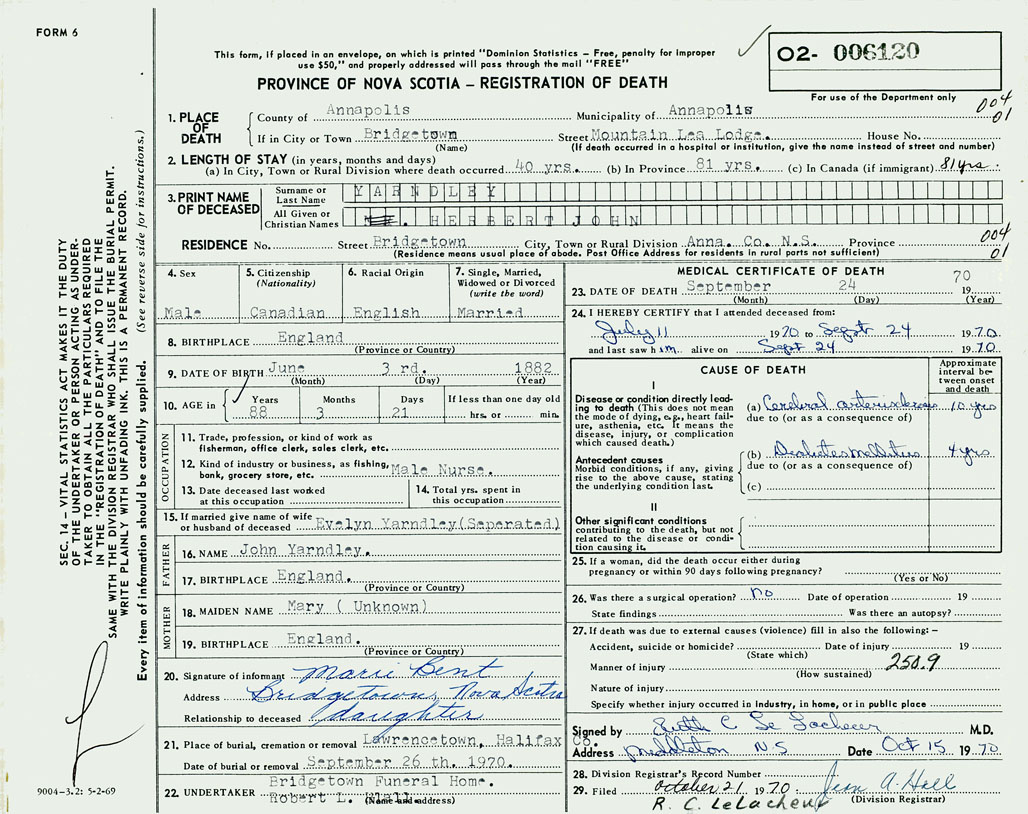 FORM 6
This form, if placed in an envelope, on which is printed "Dominion Statistics – Free, penalty for improper
use $50," and properly addressed will pass through the mail "FREE"
PROVINCE OF NOVA SCOTIA – REGISTRATION OF DEATH
O2- 006120
For use of the Department only
004
01
1. PLACE OF DEATH
County of Annapolis Municipality of Annapolis
If in City or Town Bridgetown Street Mountain Lea Lodge. House No.
(Name) (If death occurred in a hospital or institution, give the name instead of street and number)
2. LENGTH OF STAY (in years, months and days)
(a) In City, Town or Rural Division where death occurred 40 yrs. (b) In Province 81 yrs. (c) In Canada (if immigrant) 81 yrs.
3. PRINT NAME OF DECEASED
Surname or Last Name YARNDLEY
All Given or Christian Names HERBERT JOHN
RESIDENCE No. Street Bridgetown City, Town or Rural Division Anna. Co. N.S. Province
004
01
(Residence means usual place of abode. Post Office Address for residents in rural parts not sufficient)
4. Sex
Male
5. Citizenship
(Nationality)
Canadian
6. Racial Origin
English
7. Single, Married,
Widowed or Divorced
(write the word)
Married
8. BIRTHPLACE England
(Province or Country)
9. DATE OF BIRTH June 3 rd. 1882
(Month) (Day) (Year)
10. AGE in Years Months Days If less than one day old
88 3 21 hrs. or min.
OCCUPATION
11. Trade, profession, or kind of work as
fisherman, office clerk, sales clerk, etc.
12. Kind of industry or business, as fishing,
bank, grocery store, etc. Male Nurse.
13. Date deceased last worked
at this occupation
14. Total yrs. spent in
this occupation
15. If married give name of wife
or husband of deceased Evelyn Yarndley(Seperated)
FATHER
16. NAME John Yarndley.
17. BIRTHPLACE England.
(Province or Country)
MOTHER
18. MAIDEN NAME Mary ( Unknown)
19. BIRTHPLACE England.
(Province or Country)
20. Signature of informant Marie Bent
Address Bridgetown, Nova Scotia
Relationship to deceased daughter
21. Place of burial, cremation or removal Lawrencetown, Halifax
Co.
Date of burial or removal September 26 th. 1970.
Bridgetown Funeral Home.
22. UNDERTAKER Robert L.
(Name and address)
MEDICAL CERTIFICATE OF DEATH
23. DATE OF DEATH September 24 19 70
(Month) (Day) (Year)
24. I HEREBY CERTIFY that I attended deceased from:
July 11 1970 to Sept 24 1970
and last saw him alive on Sept 24 1970
CAUSE OF DEATH
Approximate
interval be-
tween onset
and death
I
Disease or condition directly lead-
ing to death (This does not mean
the mode of dying, e.g., heart fail-
ure, asthenia, etc. It means the
disease, injury, or complication
which caused death.)
(a) Cerebral arteriosclerosis 10 yrs
due to (or as a consequence of)
Antecedent causes
Morbid conditions, if any, giving
rise to the above cause, stating
the underlying condition last.
(b) Diabetes mellitus 4 yrs
due to (or as a consequence of)
(c)
II
Other significant conditions
contributing to the death, but not
related to the disease or condi-
tion causing it.
25. If a woman, did the death occur either during
pregnancy or within 90 days following pregnancy?
(Yes or No)
26. Was there a surgical operation? no Date of operation 19
State findings Was there an autopsy?
27. If death was due to external causes (violence) fill in also the following: –
Accident, suicide or homicide? Date of injury 19
(State which)
Manner of injury 250.9
(How sustained)
Nature of injury
Specify whether injury occurred in industry, in home, or in public place
Signed by M.D.
Address Middleton N S Date Oct 15 1970
28. Division Registrar's Record Number
29. Filed October 21 1970 Jean A. Hall
(Division Registrar)
R. C. LeLacheur
SEC. 14 – VITAL STATISTICS ACT MAKES IT THE DUTY
OF THE UNDERTAKER OR PERSON ACTING AS UNDER-
TAKER TO OBTAIN ALL THE PARTICULARS REQUIRED
IN THE "REGISTRATION OF DEATH" AND TO FILE THE
SAME WITH THE DIVISION REGISTRAR WHO SHALL ISSUE THE BURIAL PERMIT.
WRITE PLAINLY WITH UNFADING INK. THIS IS A PERMANENT RECORD.
Every item of information should be carefully supplied. (See reverse side for instructions.)
9004–3.2: 5-2-69